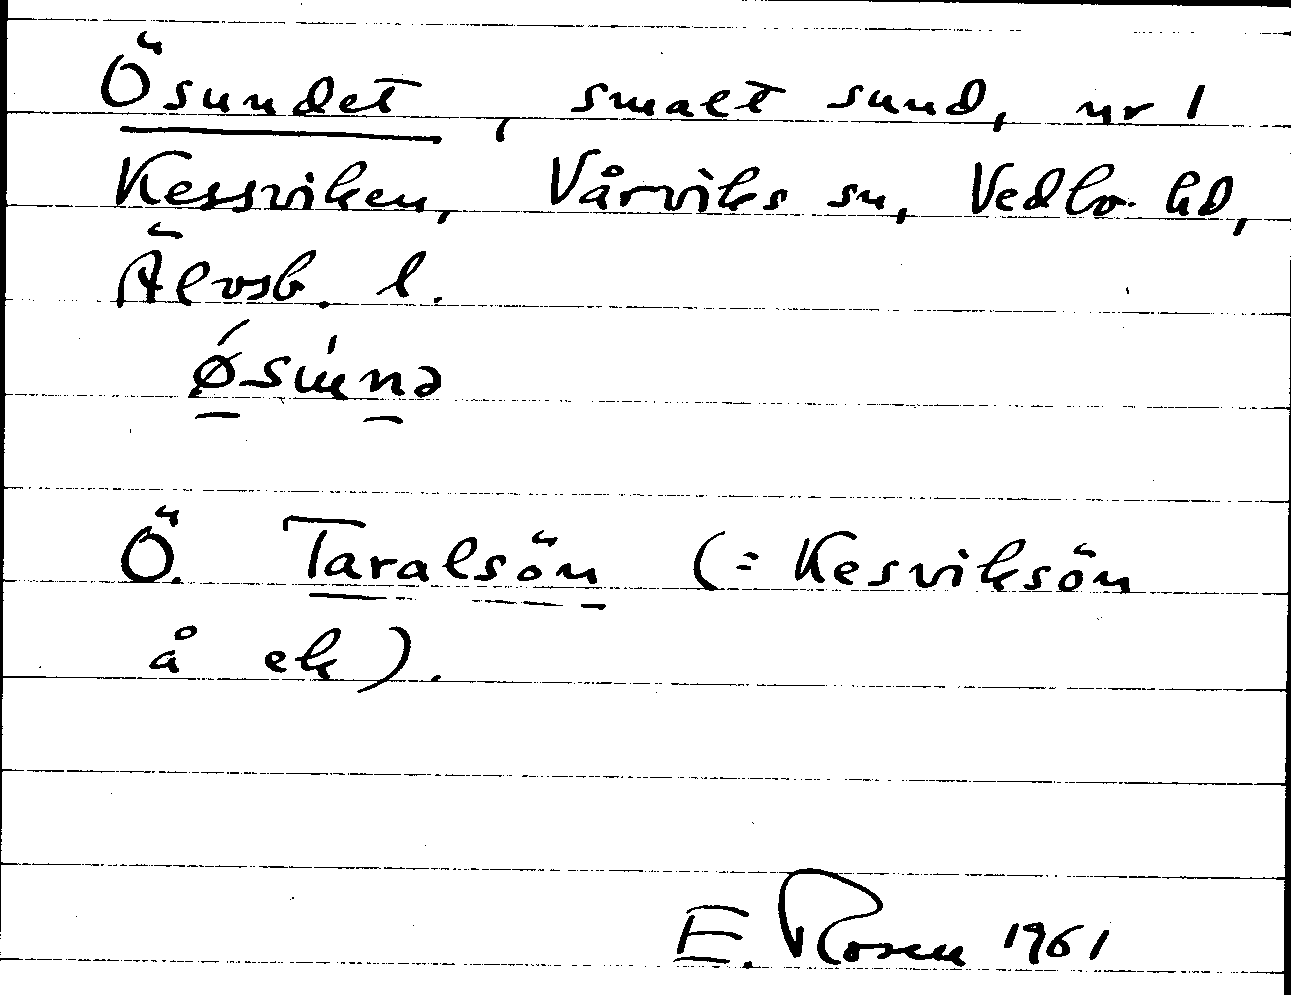 Ösundet, smalt sund, nr 1
Kessviken, Vårviks sn, Vedbo hd,
Älvsb. l.
Ö. Taralsön (= Kesviksön
å ek).
E. Rosen 1961